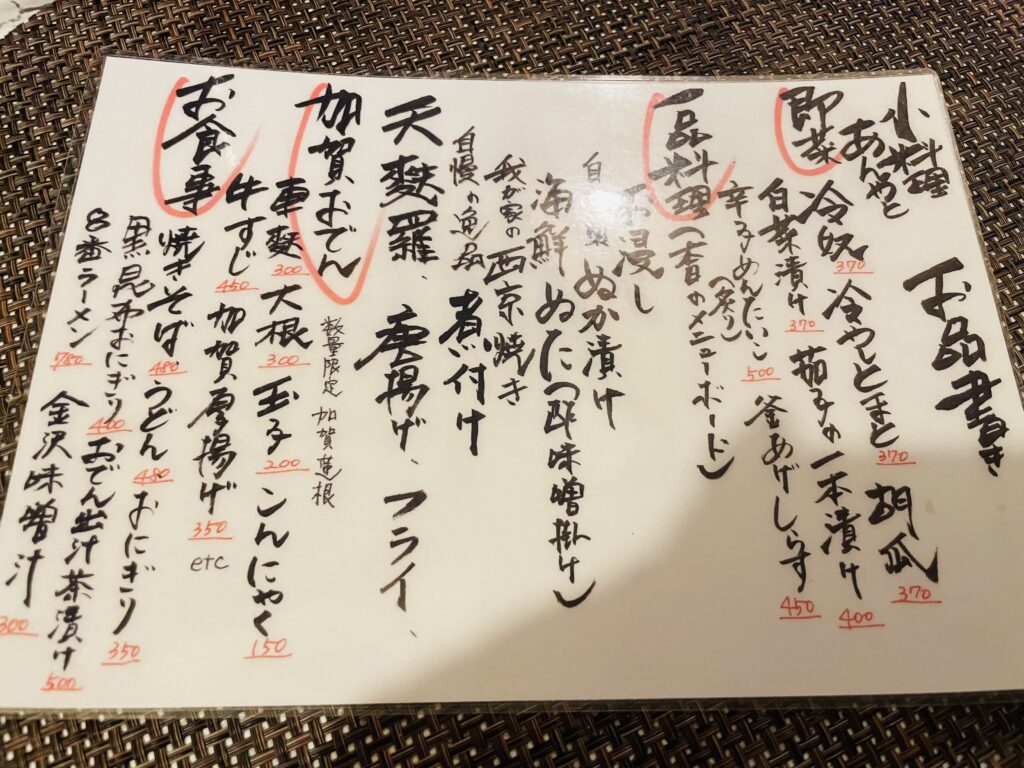 小料理
あんやと
お品書き
即菜
冷奴 370 冷やしとまと 370 胡瓜 370
白菜漬け 370 茄子の一本漬け 400
辛子めんたいこ 500 釜あげしらす 450
(炙り)
一品料理(本日のメニューボード)
お浸し
ぬか漬け
海鮮ぬた(酢味噌掛け)
我が家の西京焼き
自慢の逸品 煮付け
天麩羅、唐揚げ、フライ、
加賀おでん 数量限定 加賀蓮根
車麩 300 大根 300 玉子 200 こんにゃく 150
牛すじ 450 加賀厚揚げ 350 etc
お食事
焼きそば 480 うどん 480 おにぎり 350
黒昆布おにぎり 400 おでん出汁茶漬け 500
8番ラーメン 780 金沢味噌汁 300